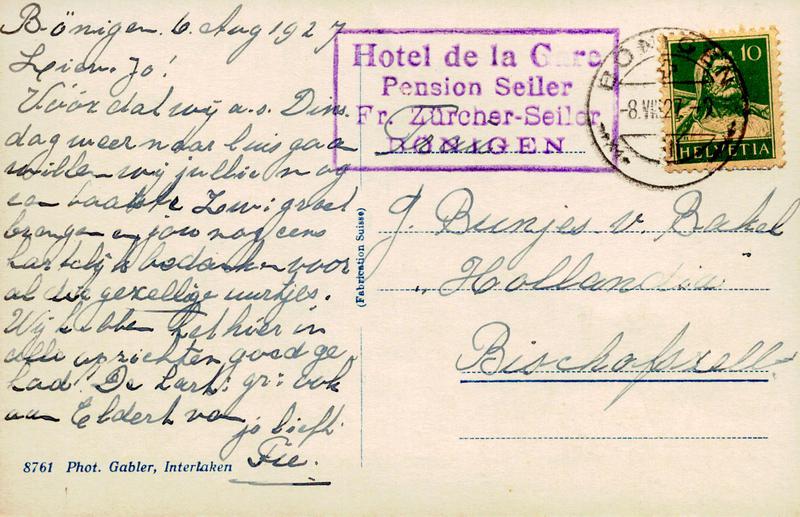 Bönigen. 6 Aug 1927
Lieve Jo!
Vóór dat wij a.s. Dins-
dag weer naar huis gaan
willen wij jullie nog
een laatste Zwi. groet
brengen en jou nog eens
hartelijk bedanken voor
al die gezellige uurtjes.
Wij hebben het hier in
alle opzichten goed ge-
had! De hart: gr: ook
aan Eldert van
je liefh.
Fie.
8761 Phot. Gabler, Interlaken
(Fabrication Suisse)
Hotel de la Gare
Pension Seiler
Fr. Zürcher-Seiler
BÖNIGEN
BÖNIGEN
-8.VIII.27
10
HELVETIA
J. Bunjes v. Bakel
"Hollandia"
Bischofszell